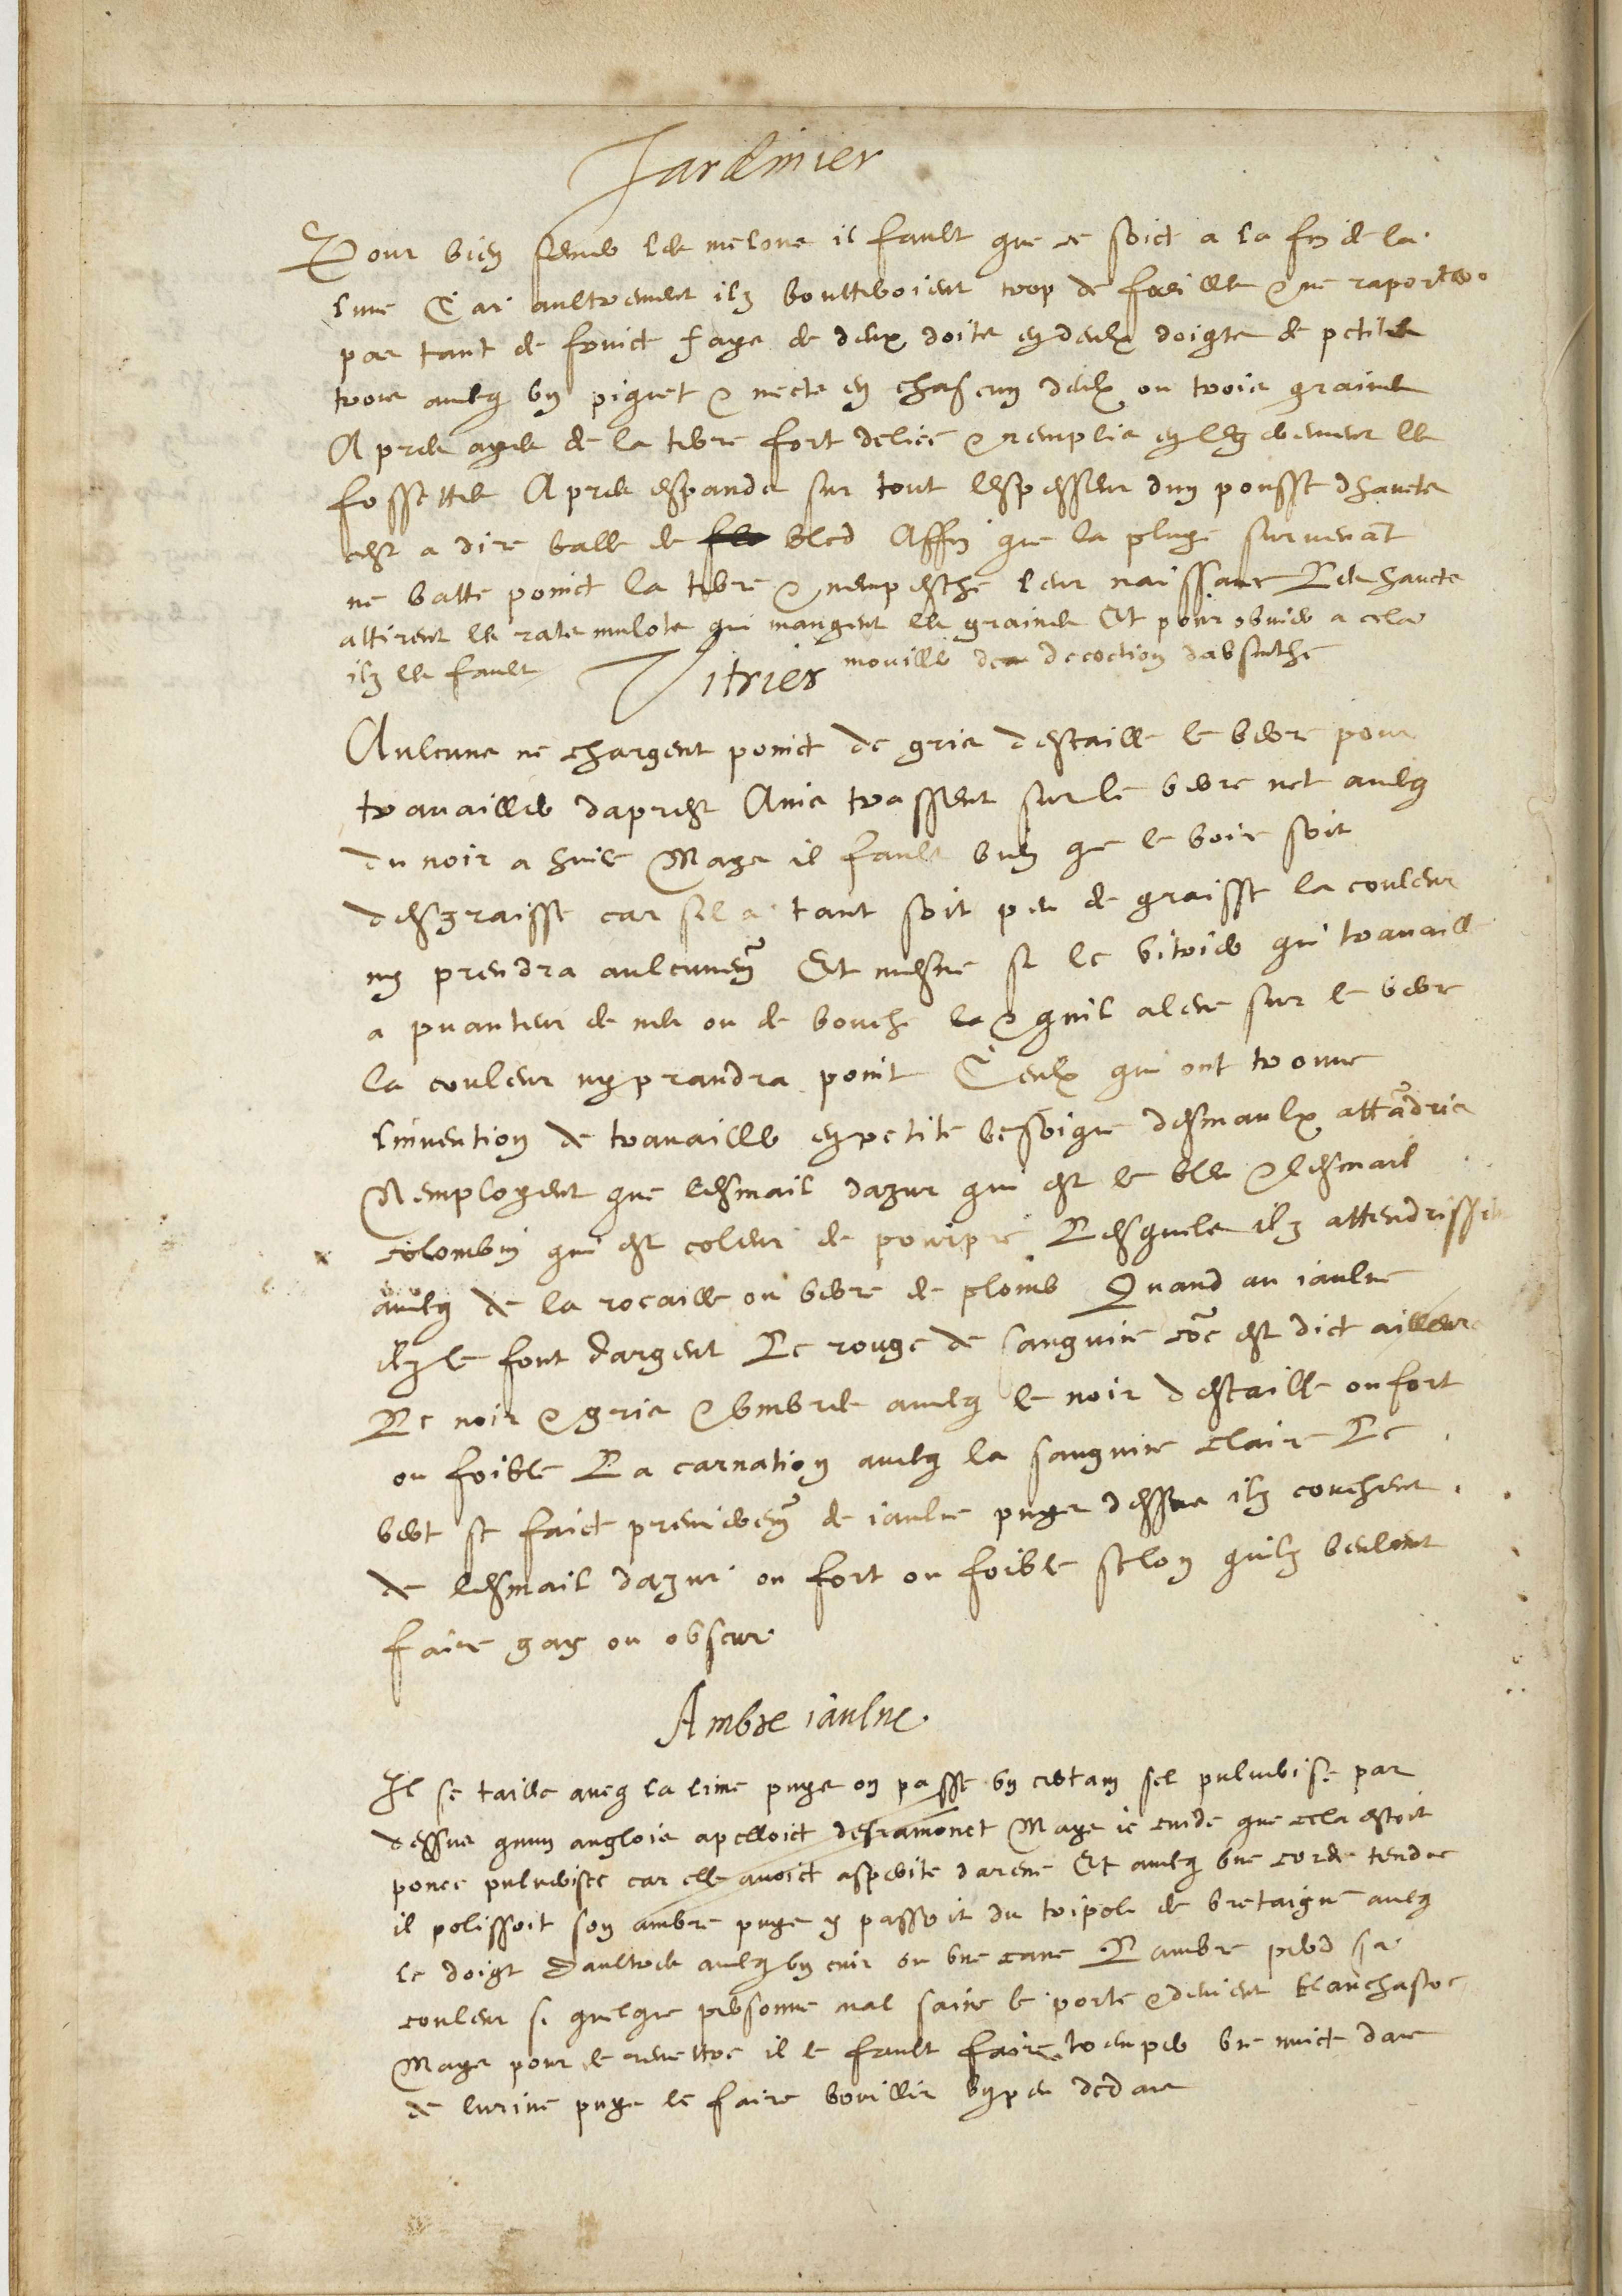 Jardinier
Pour bien semer les melons il fault que ce soict a la fin de la
lune Car aultrement ilz boutteroient trop de foeilles & ne raportero
pas tant de fruict fays de deux doits en deulx doigts de petits
trous aveq un piquet & mects en chascun deulx ou trois graines
Apres ayes de la terre fort deliee & remplis en legerement les
fossettes Apres espands sur tout lespesseur dun pousse dhaucts
cest a dire balle de bled Affin que la pluye survenant
ne batte poinct la terre & nempesche leur naissance Les haucts
attirent les rats mulots qui mangent les graines Et pour obvier a cela
ilz les fault mouiller de decoction dabsinthe
Vitrier
Aulcuns ne chargent poinct de gris descaille le verre pour
travailler daprest Ains trassent sur le verre net aveq
du noir a huile Mays il fault bien que le voire soit
desgraisse car sil a tant soit peu de graisse la couleur
ny prendra aulcunem{ent} Et mesme si le vitrier qui travaille
a puanteur de nes ou de bouche & quil alene sur le verre
la couleur ny prandra point Ceulx qui ont trouve
linvention de travailler en petite besoigne desmaulx attãdris
Nemployent que lesmail dazur qui est le ble & lesmail
colombin qui est coleur de pourpre Lesquels ilz attendrissent
aveq de la rocaille ou verre de plomb Quand au jaulne
ilz le font dargent Le rouge de sanguine cõe est dict ailleurs
Le noir & gris & umbres aveq le noir descaille ou fort
ou foible La carnation aveq la sanguine claire Le
vert se faict premierem{ent} de jaulne puys dessus ilz couchent
de lesmail dazur ou fort ou foible selon quilz veulent
faire gay ou obscur
Ambre jaulne
Il se taille aveq la lime puys on passe un certain sel pulverise par
dessus quun anglois apelloict Mays je cuide que cela estoit
ponce pulverisee car elle avoict asperite darene Et aveq une corde tendue
il polissoit son ambre puys y passoit du tripole de bretaigne aveq
le doigt Daultres aveq un cuir ou une cane Lambre perd sa
couleur si quelque personne mal saine le porte & devient blanchastre
Mays pour le remettre il le fault faire tremper une nuict dans
de lurine puys le faire bouillir un peu dedans